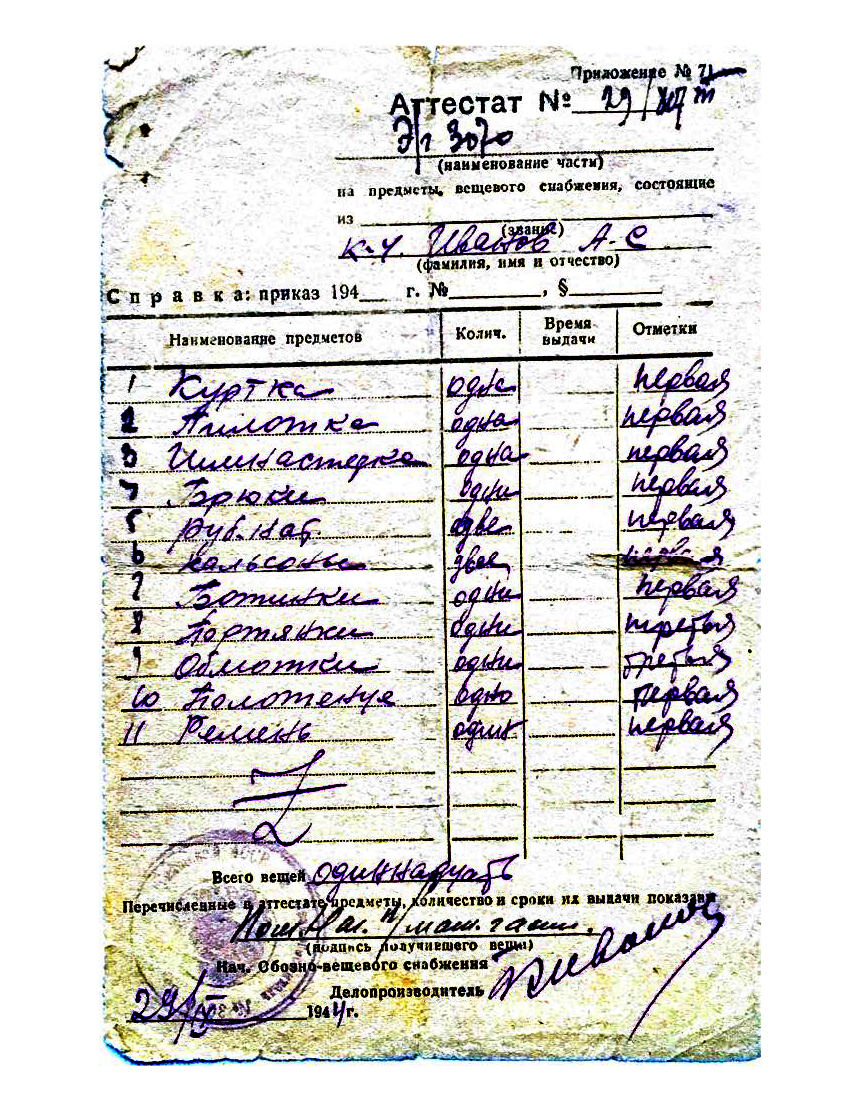 Приложение № 71
Аттестат № 29/
Э/г 3070
(наименование части)
на предметы, вещевого снабжения, состоящие
из
(звание)
к-у. Иванов А-С
(фамилия, имя и отчество)
Справка: приказ 194 г. № , §
Наименование предметов Колич. Время выдачи Отметки
1 Куртка одна первая
2 Пилотка одна первая
3 Гимнастерка одна первая
4 Брюки одни первая
5 Руб. нат две первая
6 кальсоны двое первая
7 Ботинки одни первая
8 Портянки одни третья
9 Обмотки одни третья
10 Полотенце одно первая
11 Ремень один первая
Всего вещей одиннадцать
Перечисленные в аттестате предметы, количество и сроки их выдачи показаны
(подпись получившего вещи)
Нач. Обозно-вещевого снабжения
Делопроизводитель
29/IV 1944 г.